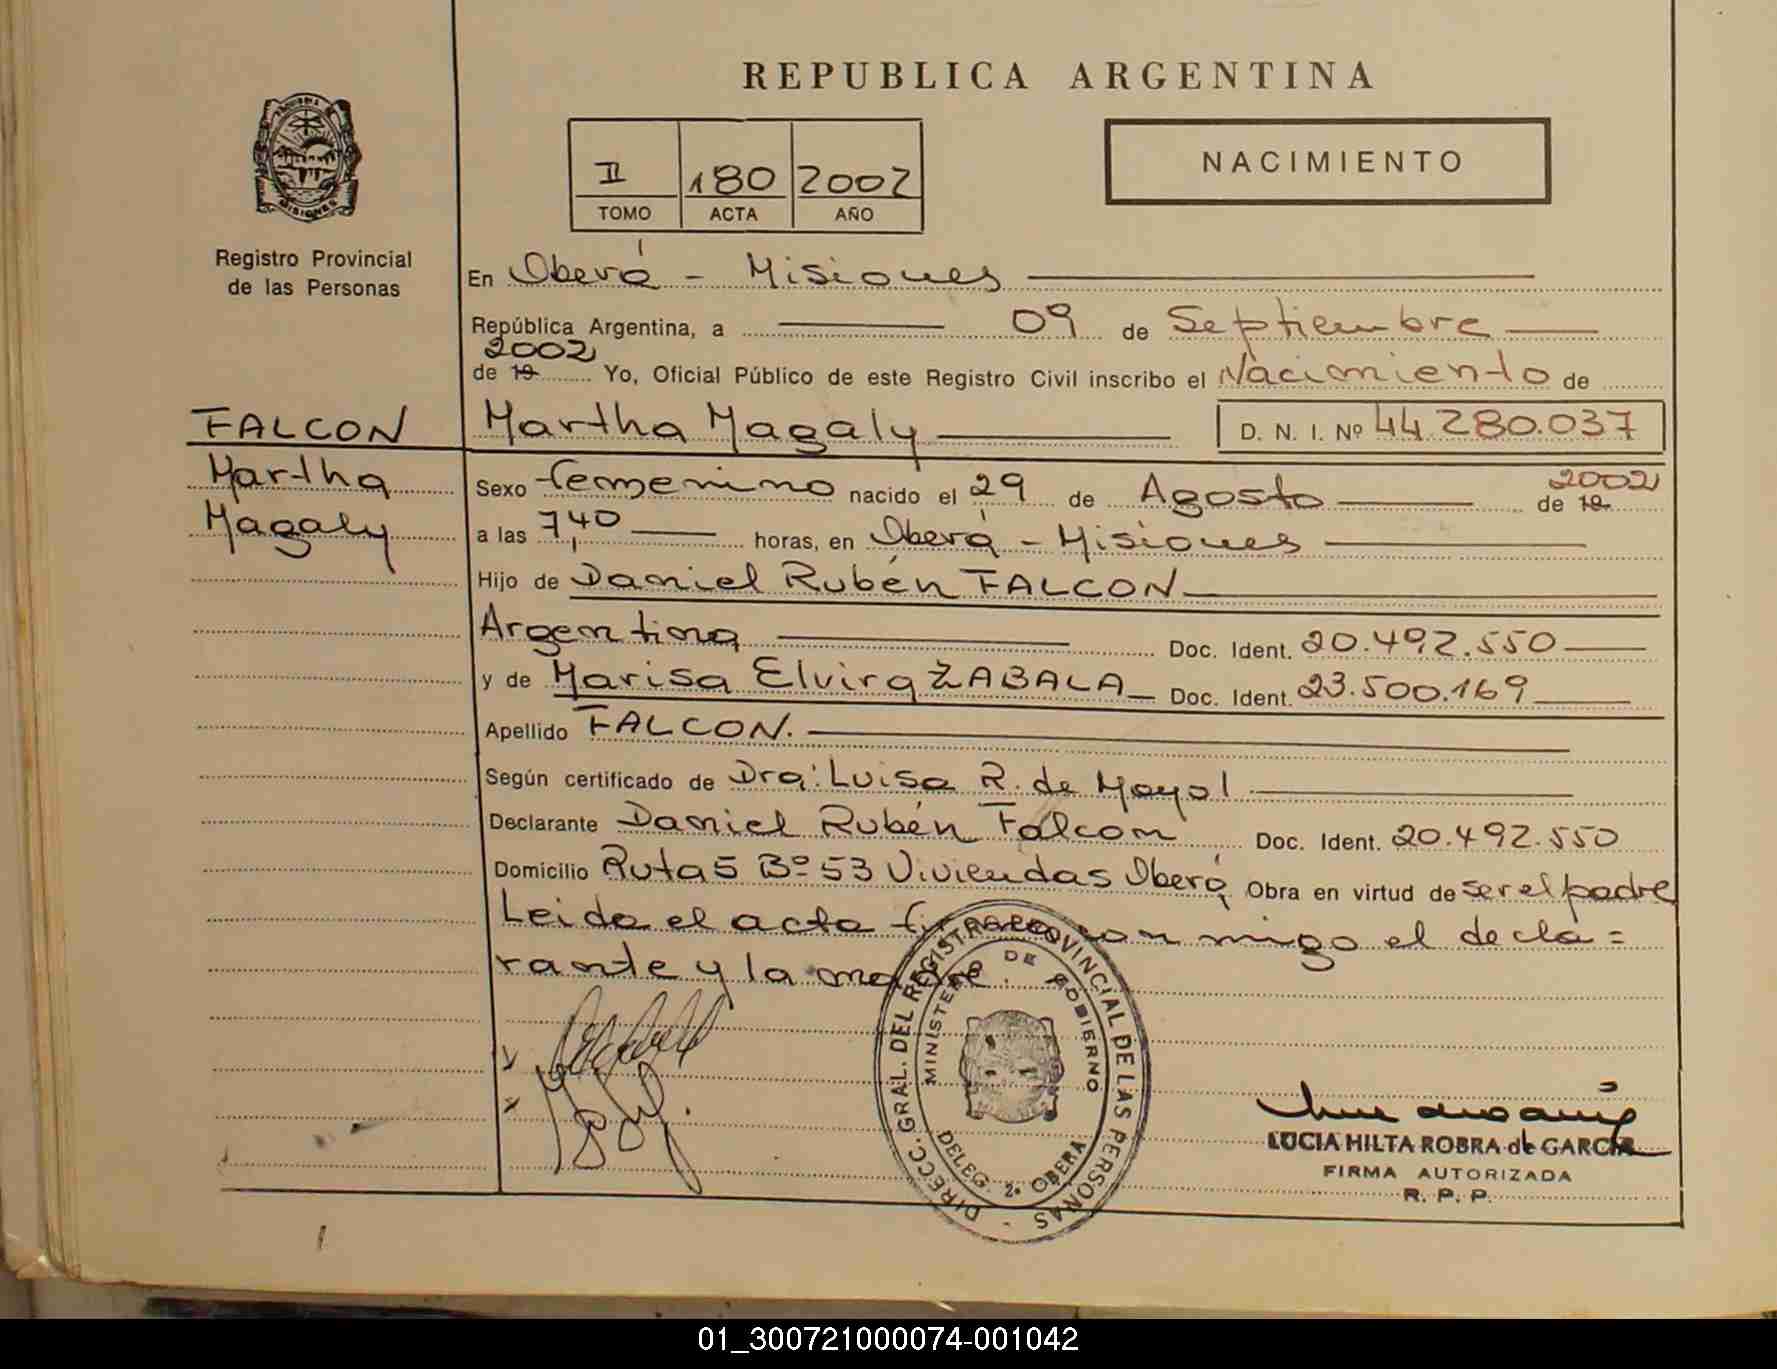 REPUBLICA ARGENTINA
MISIONES
Registro Provincial
de las Personas
II 180 2002
TOMO ACTA AÑO
NACIMIENTO
En Oberá - Misiones
República Argentina, a 09 de Septiembre
2002
de 19 Yo, Oficial Público de este Registro Civil inscribo el Nacimiento de
FALCON Martha Magaly D. N. I. Nº 44.280.037
Martha
Magaly
Sexo femenino nacido el 29 de Agosto de 19 2002
a las 7,40 horas, en Oberá - Misiones
Hijo de Daniel Rubén FALCON
Argentina Doc. Ident. 20.492.550
y de Marisa Elvira ZABALA Doc. Ident. 23.500.169
Apellido FALCON.
Según certificado de Dra: Luisa R. de Mayol
Declarante Daniel Rubén Falcon Doc. Ident. 20.492.550
Domicilio Ruta 5 Bº 53 Viviendas Oberá Obra en virtud de ser el padre
Leido el acta firman conmigo el decla=
rante y la madre.
DIRECC. GRAL. DEL REGISTRO PROVINCIAL DE LAS PERSONAS -
MINISTERIO DE GOBIERNO
DELEG. 2ª OBERA
LUCIA HILTA ROBRA de GARCIA
FIRMA AUTORIZADA
R. P. P.
01_300721000074-001042